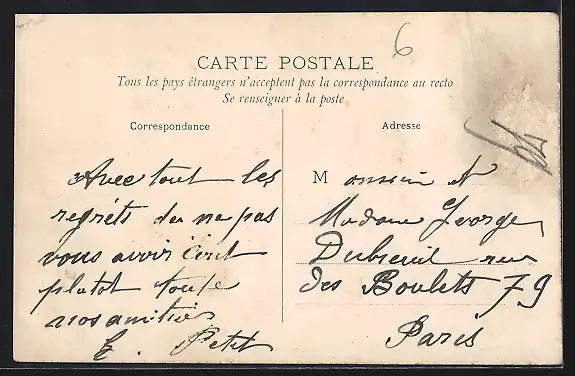 6
CARTE POSTALE
Tous les pays étrangers n'acceptent pas la correspondance au recto
Se renseigner à la poste
Correspondance
Adresse
Avec tout les
regréts de ne pas
vous avoir écrit
plutot toute
nos amitiés
E. Petit
Monsieur et
Madame George
Dubreuil rue
des Boulets 79
Paris